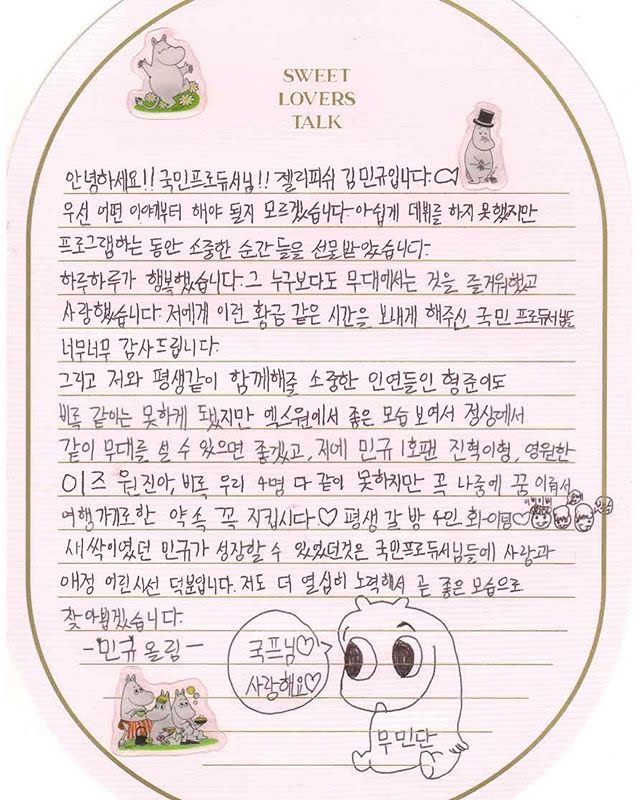 SWEET
LOVERS
TALK
안녕하세요!! 국민프로듀서님!! 젤리피쉬 김민규입니다.
우선 어떤 이야기부터 해야 될지 모르겠습니다. 아쉽게 데뷔를 하지 못했지만
프로그램하는 동안 소중한 순간들을 선물받았습니다.
하루하루가 행복했습니다. 그 누구보다도 무대에서는 것을 즐거워했고
사랑했습니다. 저에게 이런 황금 같은 시간을 보내게 해주신 국민 프로듀서님들
너무너무 감사드립니다.
그리고 저와 평생같이 함께해줄 소중한 인연들인 형준이도
비록 같이는 못하게 됐지만 엑스원에서 좋은 모습 보여서 정상에서
같이 무대를 설 수 있으면 좋겠고, 저에 민규 1호팬 진혁이형, 영원한
이즈 원진아, 비록 우리 4명 다 같이 못하지만 꼭 나중에 꿈 이뤄서
여행가기로한 약속 꼭 지킵시다♡ 평생 갈 방 4인 회-이팅♡
새싹이였던 민규가 성장할 수 있었던것은 국민프로듀서님들에 사랑과
애정 어린시선 덕분입니다. 저도 더 열심히 노력해서 곧 좋은 모습으로
찾아뵙겠습니다.
-민규 올림-
국프님♡
사랑해요♡
무민단